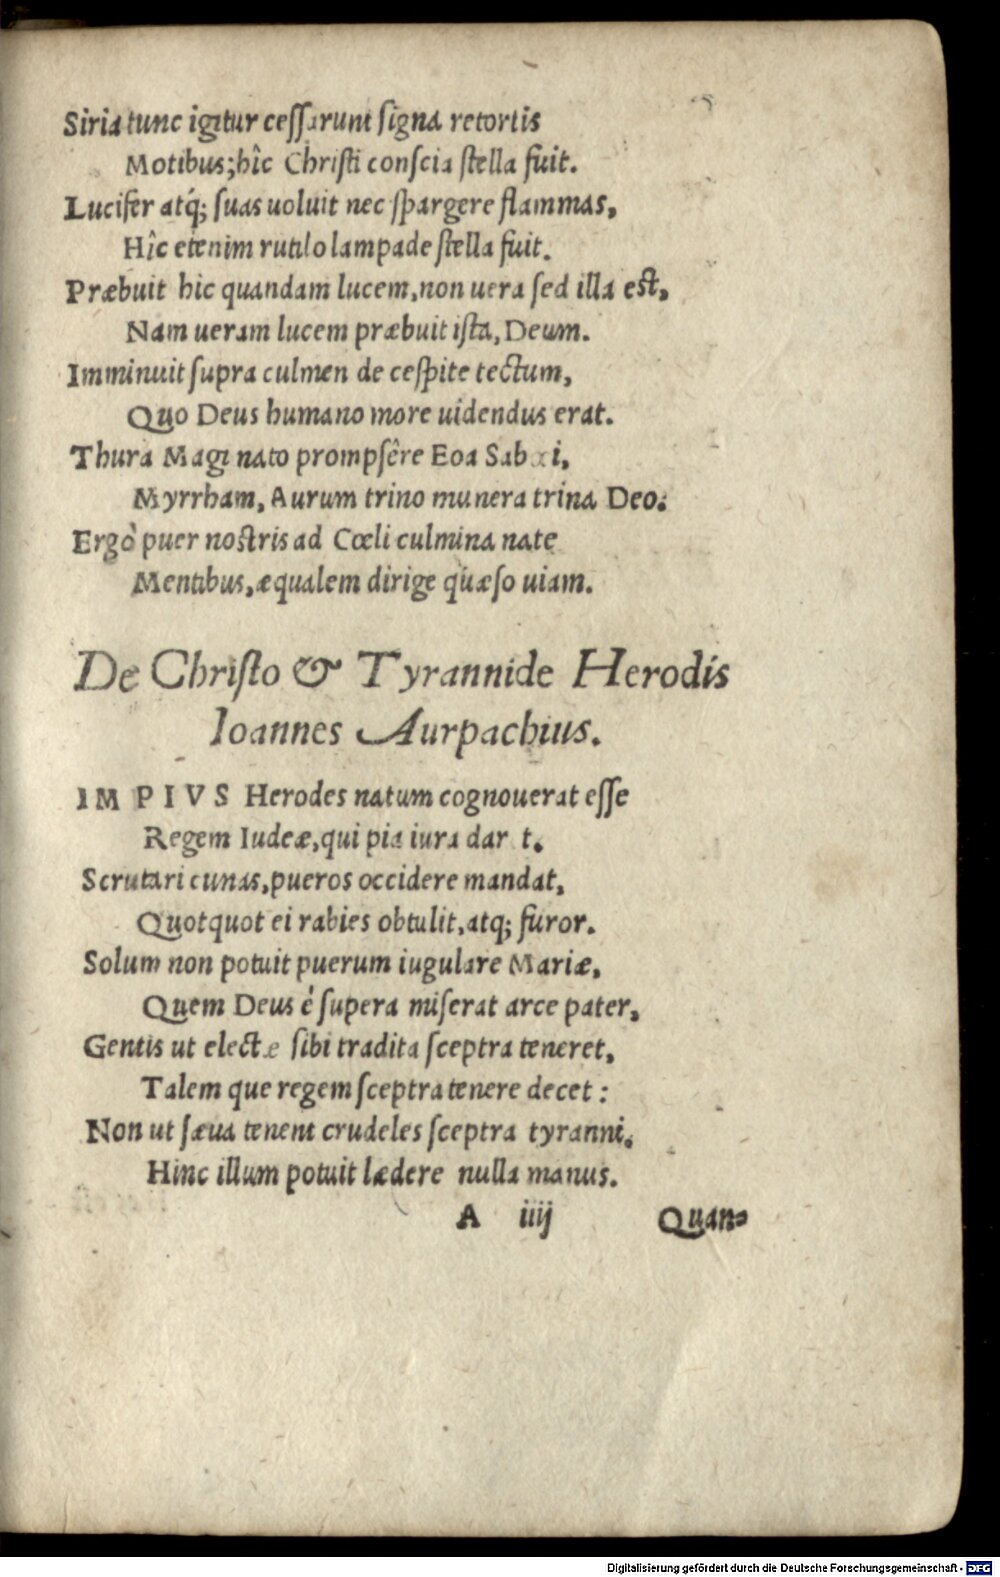 Siria tunc igitur cessarunt signa retortis
Motibus; hîc Christi conscia stella fuit.
Lucifer atq́; suas uoluit nec spargere flammas,
Hîc etenim rutilo lampade stella fuit.
Præbuit hic quandam lucem, non uera sed illa est,
Nam ueram lucem præbuit ista, Deum.
Imminuit supra culmen de cespite tectum,
Quo Deus humano more uidendus erat.
Thura Magi nato prompsêre Eoa Sabæi,
Myrrham, Aurum trino munera trina Deo.
Ergò puer nostris ad Cœli culmina nate
Mentibus, æqualem dirige quæso uiam.
De Christo & Tyrannide Herodis
Ioannes Aurpachius.
IMPIVS Herodes natum cognouerat esse
Regem Iudeæ, qui pia iura dar t.
Scrutari cunas, pueros occidere mandat,
Quotquot ei rabies obtulit, atq; furor.
Solum non potuit puerum iugulare Mariæ,
Quem Deus è supera miserat arce pater,
Gentis ut electæ sibi tradita sceptra teneret,
Talem que regem sceptra tenere decet:
Non ut sæua tenent crudeles sceptra tyranni,
Hinc illum potuit lædere nulla manus.
A iiij Quan-
Digitalisierung gefördert durch die Deutsche Forschungsgemeinschaft - DFG